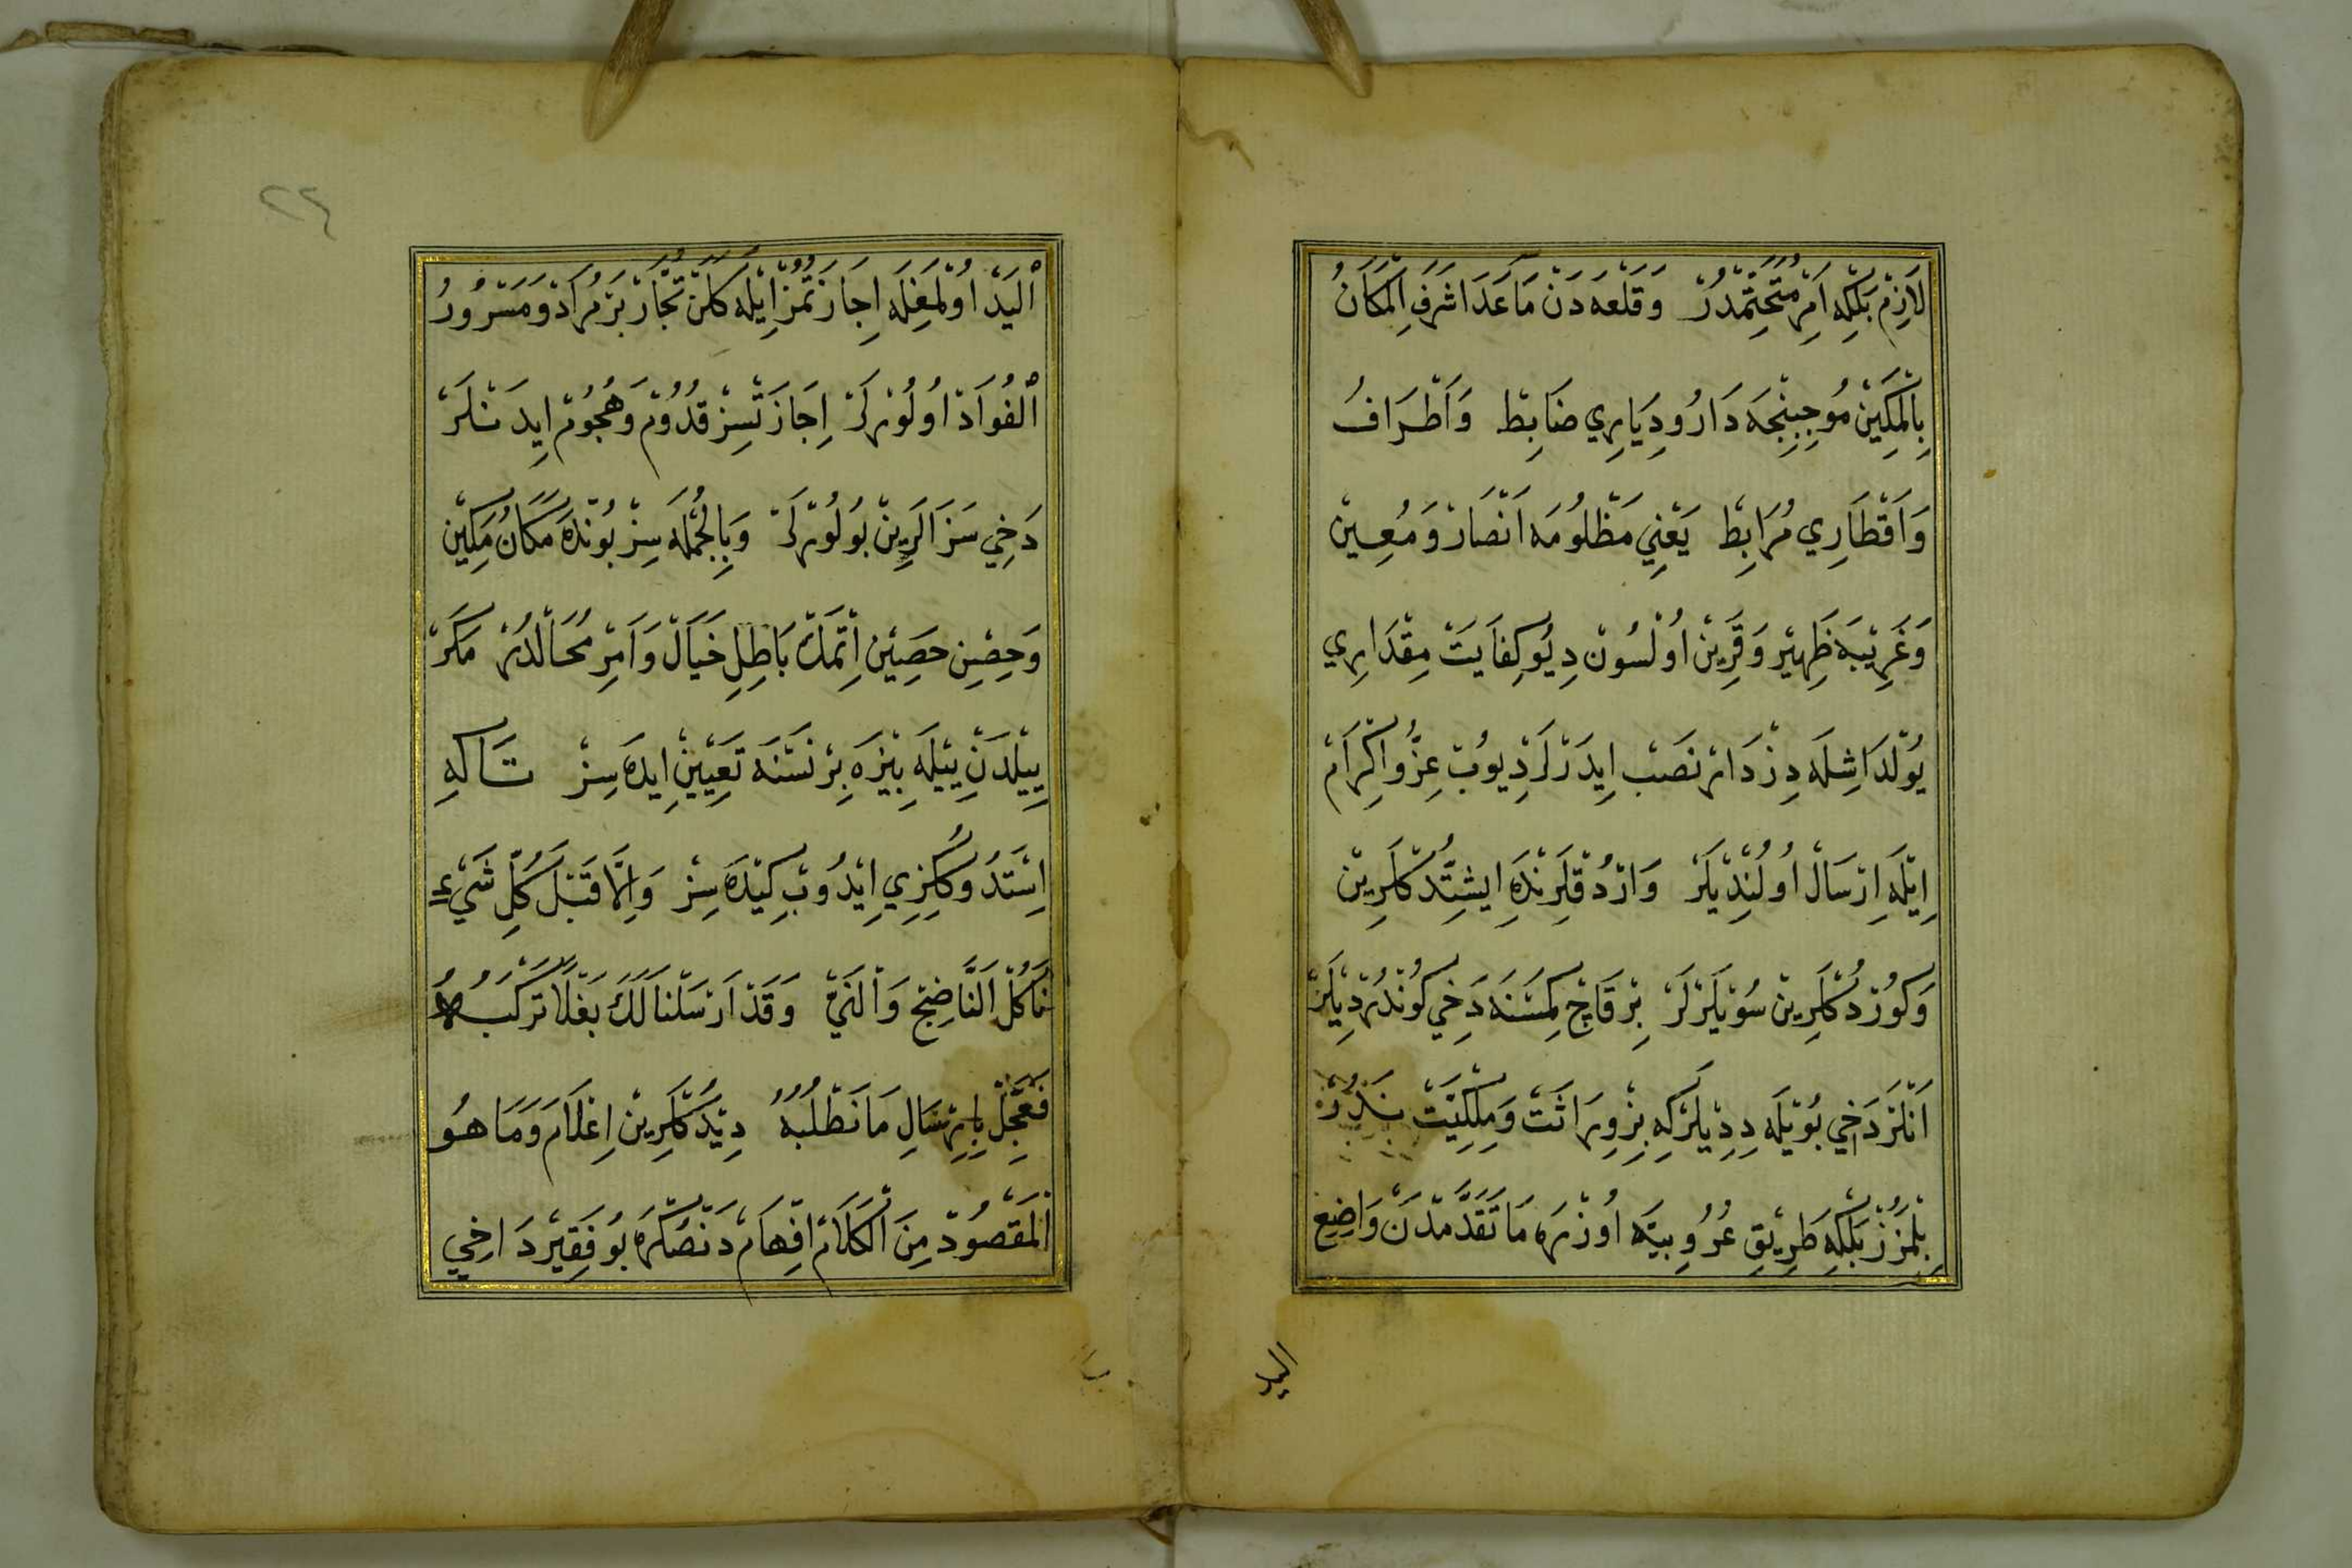 لَازِمْ بَلْكِه اَمْرِ مُتَحَتِّمْدُرْ وَقَلْعَه دَنْ مَاعَدَا شَرَفِ الْمَكَانُ
بِالْمَكِينْ مُوجِبِنْجَه دَارُ و دِيَارِي ضَابِطْ وَاَطْرَافُ
وَاَقْطَارِي مُرَابِطْ يَعْنِي مَظْلُومَه اَنْصَارْ وَمُعِينْ
وَغَرِيْبَه ظَهِيْر وَقَرِيْنْ اُولْسُونْ دِيُو كِفَايَتْ مِقْدَارِي
يُولْدَاشِلَه دِزْدَارْ نَصَبْ اِيدَرْلَرْ دِيُوبْ عِزُّ و اِكْرَامْ
اِيْلَه اِرْسَالْ اُولُنْدِيْلَرْ وَارْدُقْلَرِنْدَه اِيشِتْدُكْلَرِينْ
وَكُورْدُكْلَرِينْ سُوْيلَرْلَرْ بِرْ قَاچْ كِمْسَنَه دَخِي كُونْدُرْدِيْلَرْ
اَنْلَرْ دَخِي بُوْيلَه دِدِيْلَرْكِه بِزْ وِرَاثَتْ وَمِلْكِيَّتْ
بِلْمَزُزْ بَلْكِه طَرِيْقِ عُرُوبِيَّه اُوزْرَه مَا تَقَدَّمْدَنْ وَاضِعِ
اليد
٢٤
الْيَدْ اُولْمَغِلَه اِجَازَتُمُزْ اِيْلَه كَلَنْ تُجَّارْ بَرْمُرَادْ وَمَسْرُورُ
الْفُوَادْ اُولُورْلَرْ اِجَازَتْسِزْ قُدُومْ وَهُجُومْ اِيدَنْلَرْ
دَخِي سَزَالَرِينْ بُولُورْلَرْ وَبِالْجُمْلَه سِزْ بُونْدَه مَكَانُ مَكِينْ
وَحِصْنِ حَصِيْن اِتْمَكْ بَاطِلِ خَيَالْ وَاَمْرِ مُحَالْدُرْ مَكَرْ
يِيْلدَنْ يِيْلَه بِيْزَه بِرْ نَسْنَه تَعْيِيْنْ اِيدَه سِزْ تَاكِه
اِسْتَدُوكُكِزِي اِيْدُوبْ كِيْدَه سِزْ وَاِلَّا قَبْلَ كُلِّ شَيْءٍ
نَأْكُلْ النَّاضِجْ وَالنَيّْ وَقَدْ اَرْسَلْنَا لَكَ بَغْلًا تَرْكَبُهُ
فَعَجِّلْ بِاِرْسَالِ مَا نَطْلُبُهُ دِيْدُكْلَرِينْ اِعْلَامْ وَمَا هُوَ
الْمَقْصُودْ مِنَ الْكَلَامْ اِفْهَامْ دَنْصُكْرَه بُو فَقِيرْ دَاخِي